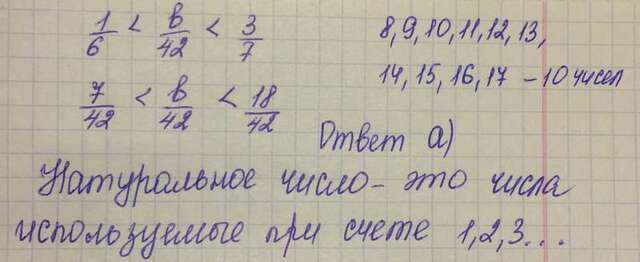 1/6 < в/42 < 3/7
8, 9, 10, 11, 12, 13,
14, 15, 16, 17 – 10 чисел
7/42 < в/42 < 18/42
Ответ а)
Натуральное число – это числа
используемые при счете 1, 2, 3...